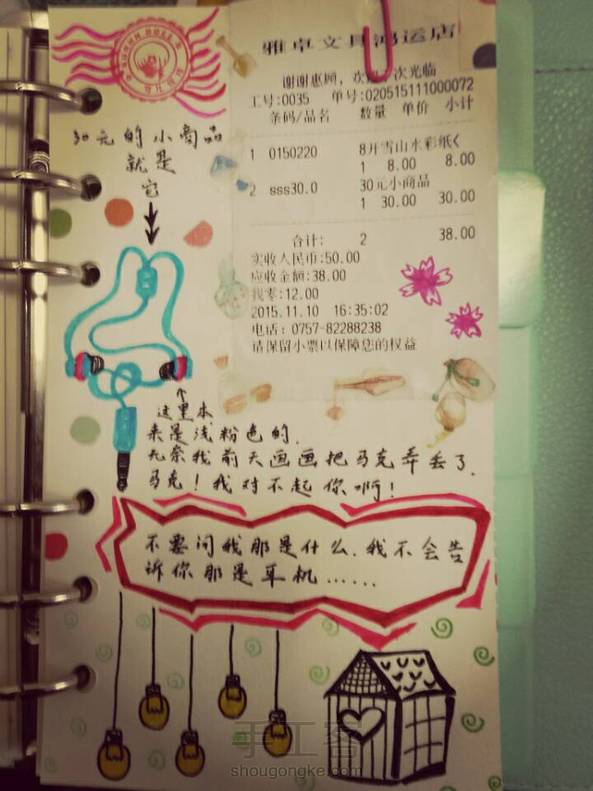 雅卓文具鸿运店
谢谢惠顾，欢迎 次光临
工号:0035 单号:020515111000072
条码/品名 数量 单价 小计
1 0150220 8开雪山水彩纸<
1 8.00 8.00
2 sss30.0 30元小商品
1 30.00 30.00
合计: 2 38.00
实收人民币:50.00
应收金额:38.00
找零:12.00
2015.11.10 16:35:02
电话: 0757-82288238
请保留小票以保障您的权益
30元的小商品
就是
它
这里本
来是浅粉色的.
无奈我前天画画把马克弄丢了.
马克！我对不起你啊！
不要问我那是什么.我不会告
诉你那是耳机……
手工客
shougongke.com